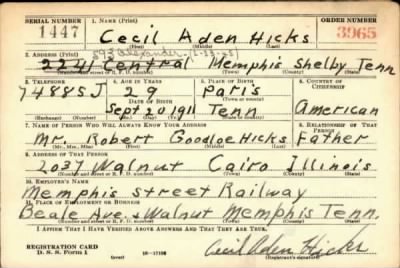 SERIAL NUMBER 1. NAME (Print) ORDER NUMBER
1447 Cecil Aden Hicks 3965
(First) (Middle) (Last)
2. ADDRESS (Print)
2241 Central Memphis Shelby Tenn
3. TELEPHONE 4. AGE IN YEARS 5. PLACE OF BIRTH 6. COUNTRY OF CITIZENSHIP
74885J 29 Paris
DATE OF BIRTH (Town or county)
Sept 20 1911 Tenn American
(Exchange) (Number) (Mo.) (Day) (Yr.) (State or country)
7. NAME OF PERSON WHO WILL ALWAYS KNOW YOUR ADDRESS 8. RELATIONSHIP OF THAT PERSON
Mr. Robert Goodloe Hicks Father
(Mr., Mrs., Miss) (First) (Middle) (Last)
9. ADDRESS OF THAT PERSON
2037 Walnut Cairo Illinois
10. EMPLOYER'S NAME
Memphis Street Railway
11. PLACE OF EMPLOYMENT OR BUSINESS
Beale Ave. & Walnut Memphis Tenn.
I AFFIRM THAT I HAVE VERIFIED ABOVE ANSWERS AND THAT THEY ARE TRUE.
REGISTRATION CARD
D. S. S. Form 1 Cecil Aden Hicks
(Registrant's signature)